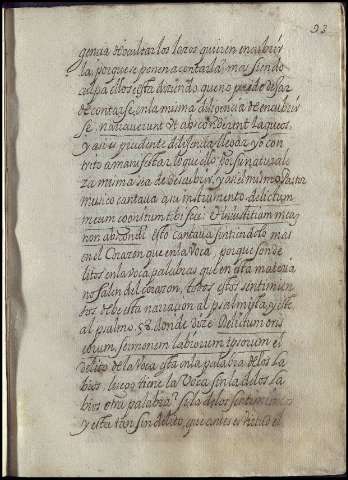 93
gencia de ocultar los lazos quieren encubrir
la, porque se ponen a contarla mas siendo
culpa ellos esta diziendo que no puede dejar
de contarse, en la misma diligencia de encubrir
se, narraverunt ut absconderent laqueos,
y assi es prudente dilijencia
trito a manifestar, lo que ello por si naturale
za misma sea de descubrir, y assi el mismo Pastor
musico cantava a su instrumento delictum
meum cognitum tibi feci: et injustitiam meam
non abscondi esto cantava sintiendolo mas
en el Corazon que en la voca, porque son de
litos en la voca palabras que en esta materia
no salen del corazon, todos estos sentimien
tos debe esta narracion al psalmista, y este
al psalmo 58. donde dize Delictum oris
eorum, sermonem labiorum ipsorum el
delito de la voca esta en la palabra de los la
bios. luego tiene la voca sin la de los la
bios otra palabra? si la de los sentimientos
y esta tan sin delito, que antes es